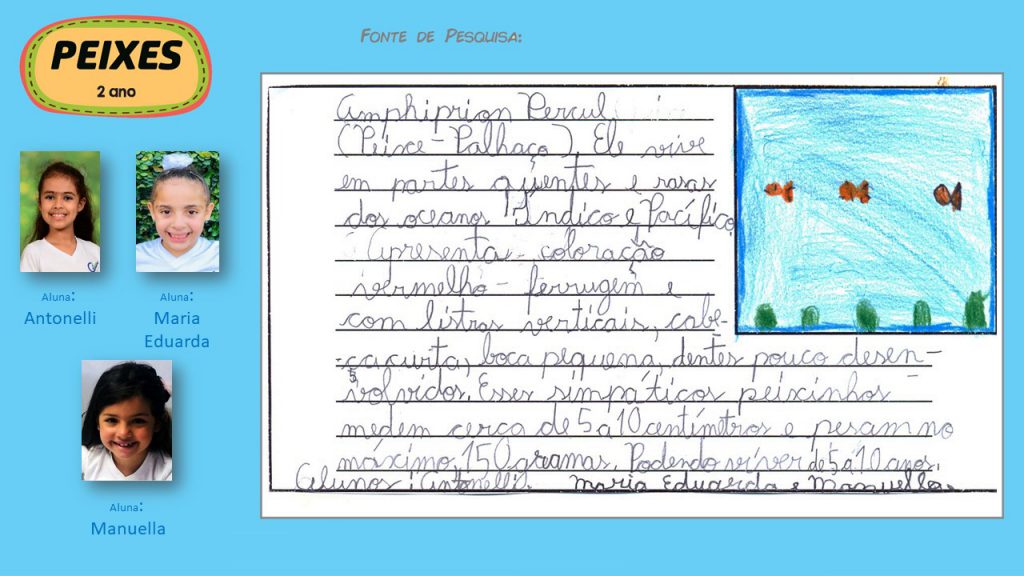 PEIXES
2 ano
FONTE DE PESQUISA:
Aluna:
Antonelli
Aluna:
Maria
Eduarda
Aluna:
Manuella
Amphiprion Percul
(Peixe-Palhaço). Ele vive
em partes quentes e rasas
dos oceanos Índico e Pacífico
Apresenta coloração
vermelho-ferrugem e
com listras verticais, cabe-
-ça curta, boca pequena, dentes pouco desen-
volvidos. Esses simpáticos peixinhos
medem cerca de 5 a 10 centímetros e pesam no
máximo 150 gramas. Podendo viver de 5 a 10 anos.
Alunos: Antonelli. Maria Eduarda e Manuella.